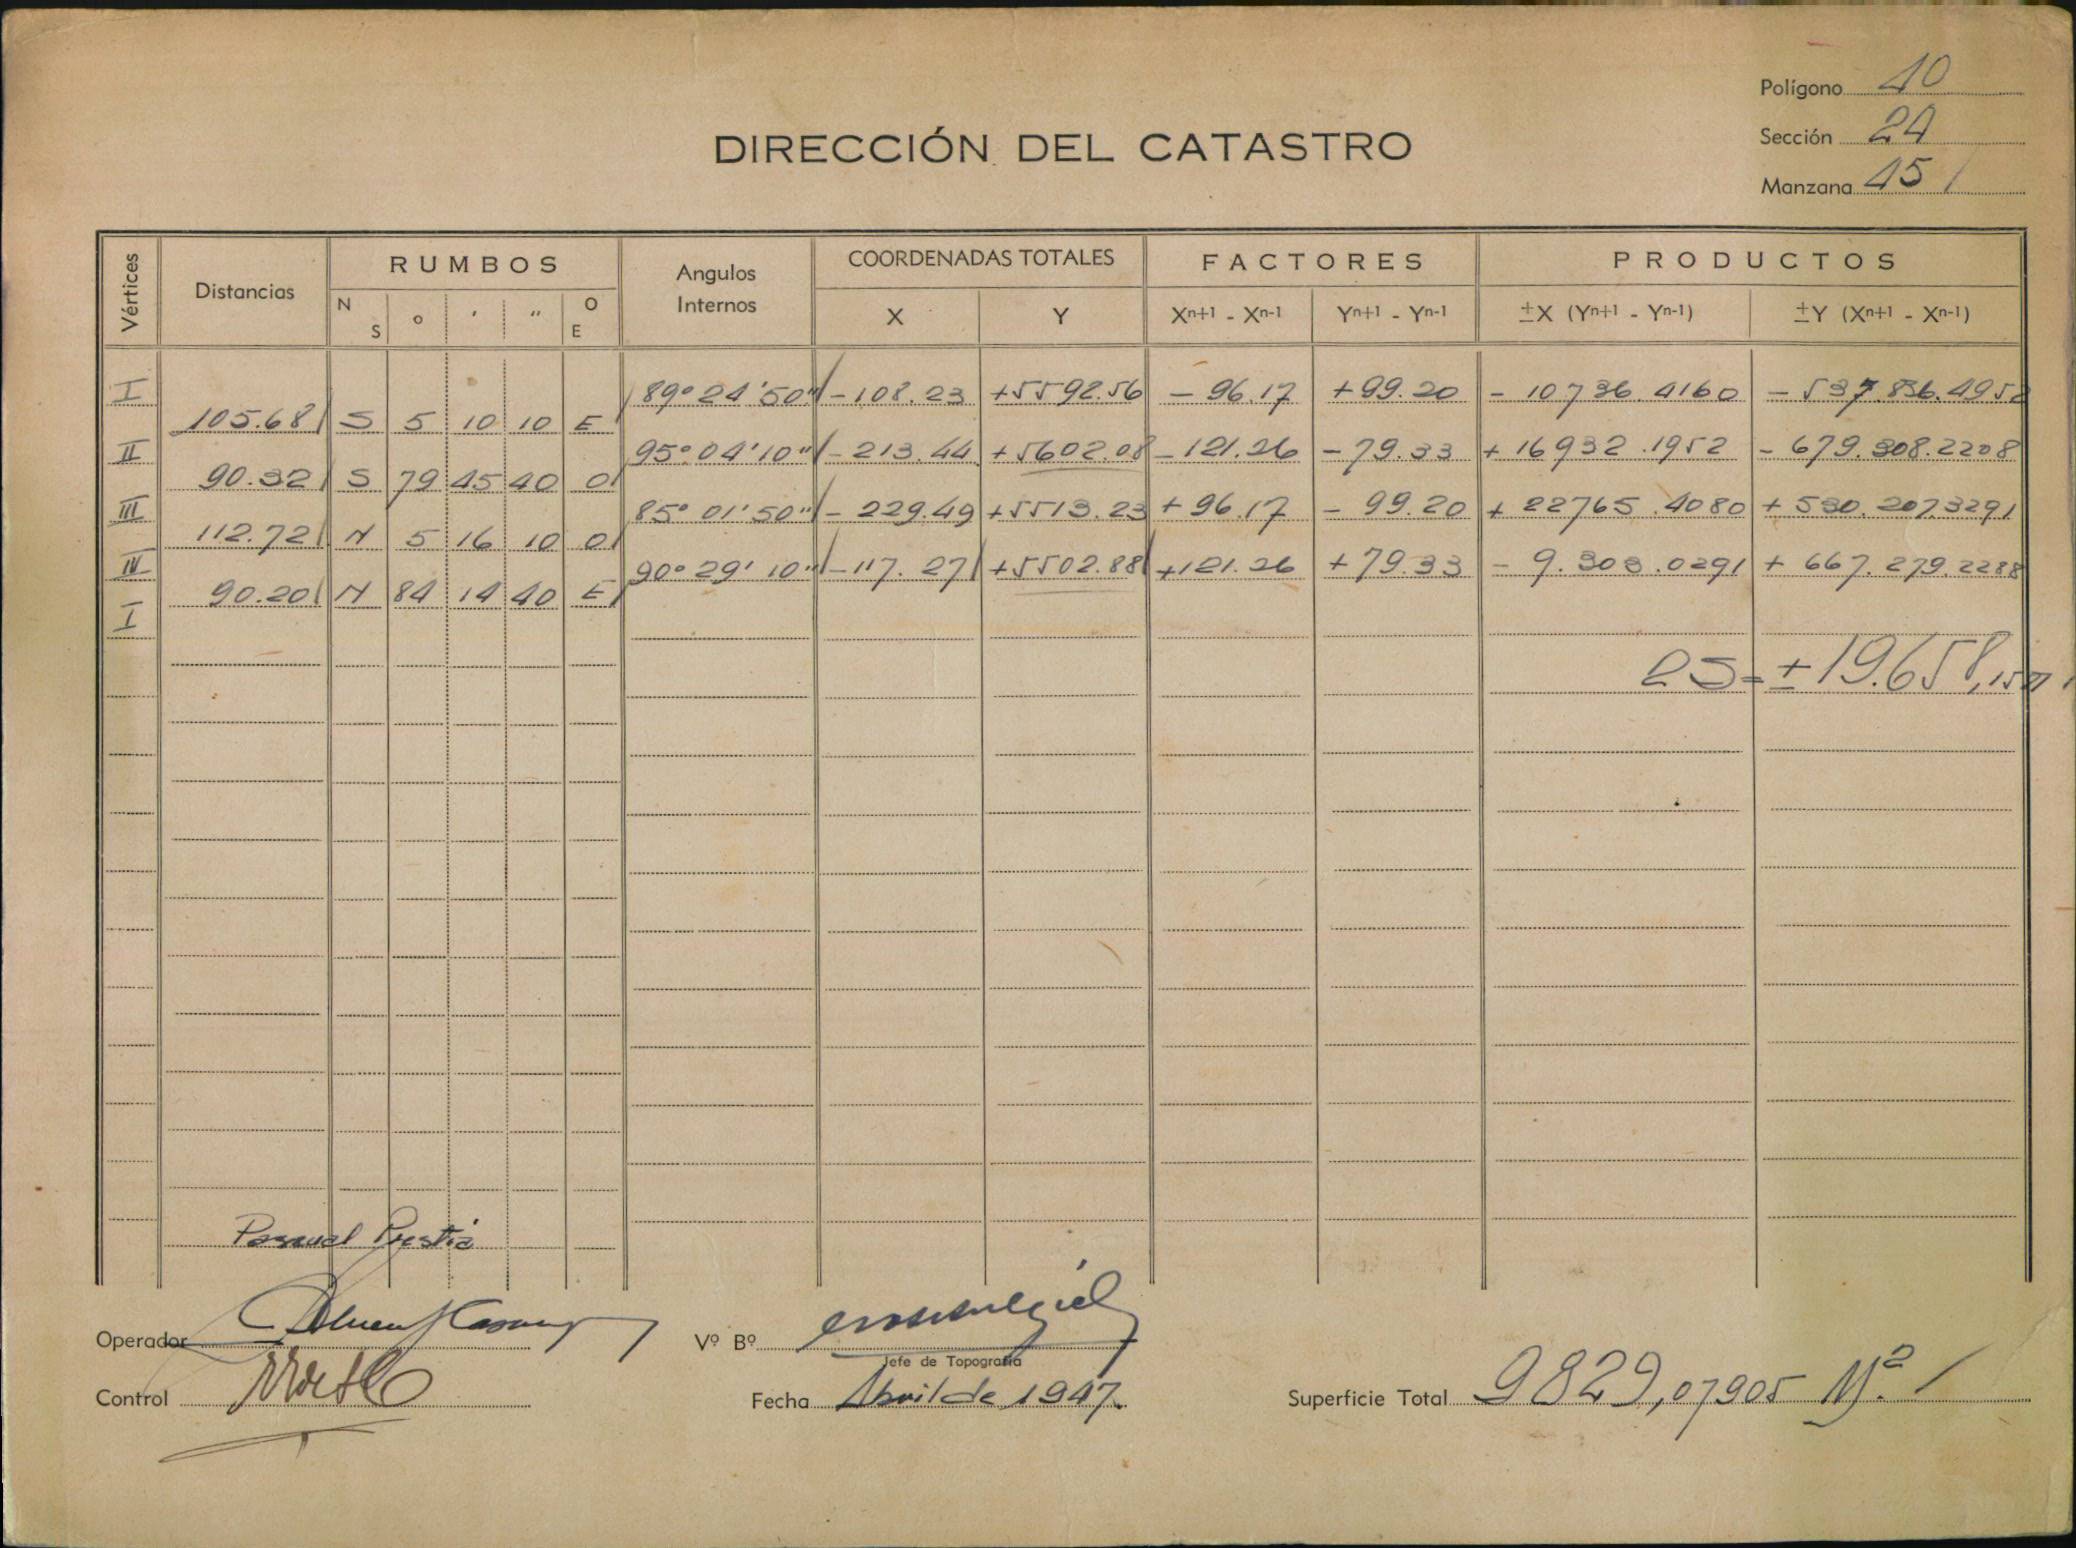 Polígono 40
DIRECCIÓN DEL CATASTRO
Sección 24
Manzana 45
Vértices Distancias RUMBOS Angulos Internos COORDENADAS TOTALES FACTORES PRODUCTOS
N S o ' " O E X Y Xn+1 - Xn-1 Yn+1 - Yn-1 ±X (Yn+1 - Yn-1) ±Y (Xn+1 - Xn-1)
I 89° 24' 50" - 108.23 +5592.56 - 96.17 +99.20 - 10736.4160 - 537.836.4952
105.68 S 5 10 10 E
II 95° 04' 10" - 213.44 +5602.08 - 121.26 - 79.33 + 16932.1952 - 679.308.2208
90.32 S 79 45 40 O
III 85° 01' 50" - 229.49 +5513.23 + 96.17 - 99.20 + 22765.4080 + 530.207.3291
112.72 N 5 16 10 O
IV 90° 29' 10" - 117.27 +5502.88 +121.26 +79.33 - 9.303.0291 + 667.279.2288
90.20 N 84 14 40 E
I
2S = ± 19.658,1581
Pascual Prestia
Operador
Vº Bº
Jefe de Topografía
Control
Fecha Abril de 1947.
Superficie Total 9829,07905 M²